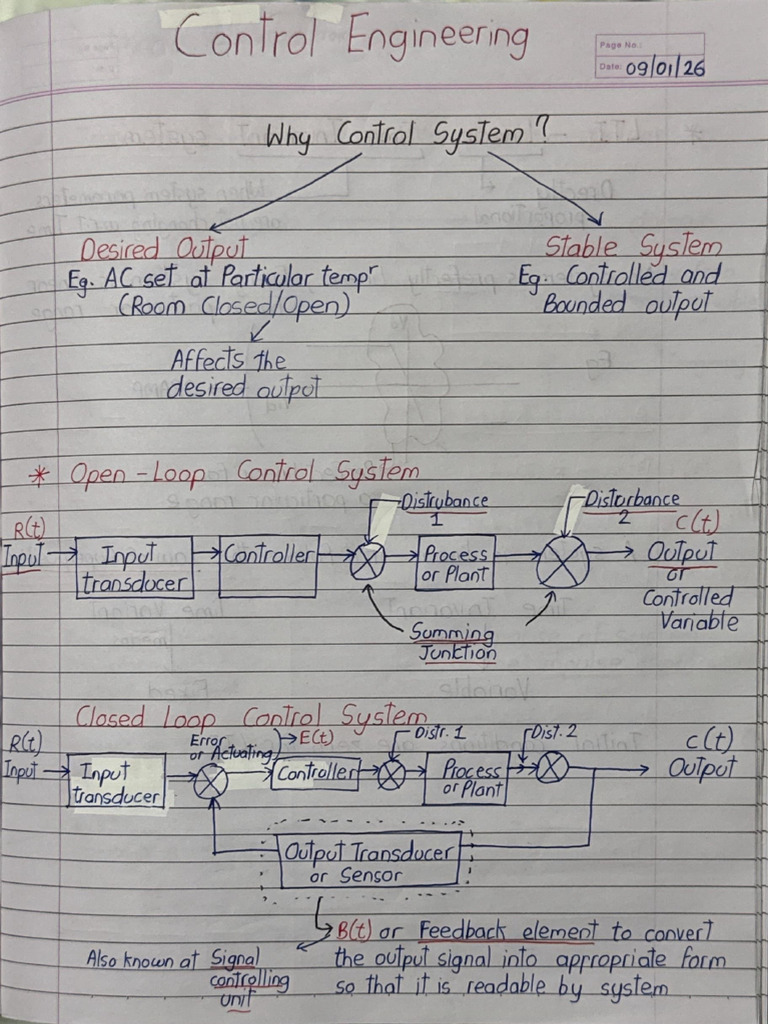 Control Engineering
Page No.:
Date: 09/01/26
Why Control System?
Desired Output
Eg. AC set at Particular tempr
(Room Closed/Open)
Affects the
desired output
Stable System
Eg. Controlled and
Bounded output
* Open-Loop Control System
Distrubance
1
Disturbance
2
R(t)
Input
Input
transducer
Controller
Process
or Plant
C(t)
Output
or
Controlled
Variable
Summing
Junktion
Closed Loop Control System
R(t)
Input
Input
transducer
Error
or Actuating
E(t)
Controller
Distr. 1
Process
or Plant
Dist. 2
C(t)
Output
Output Transducer
or Sensor
B(t) or Feedback element to convert
the output signal into appropriate form
so that it is readable by system
Also known at Signal
controlling
unit